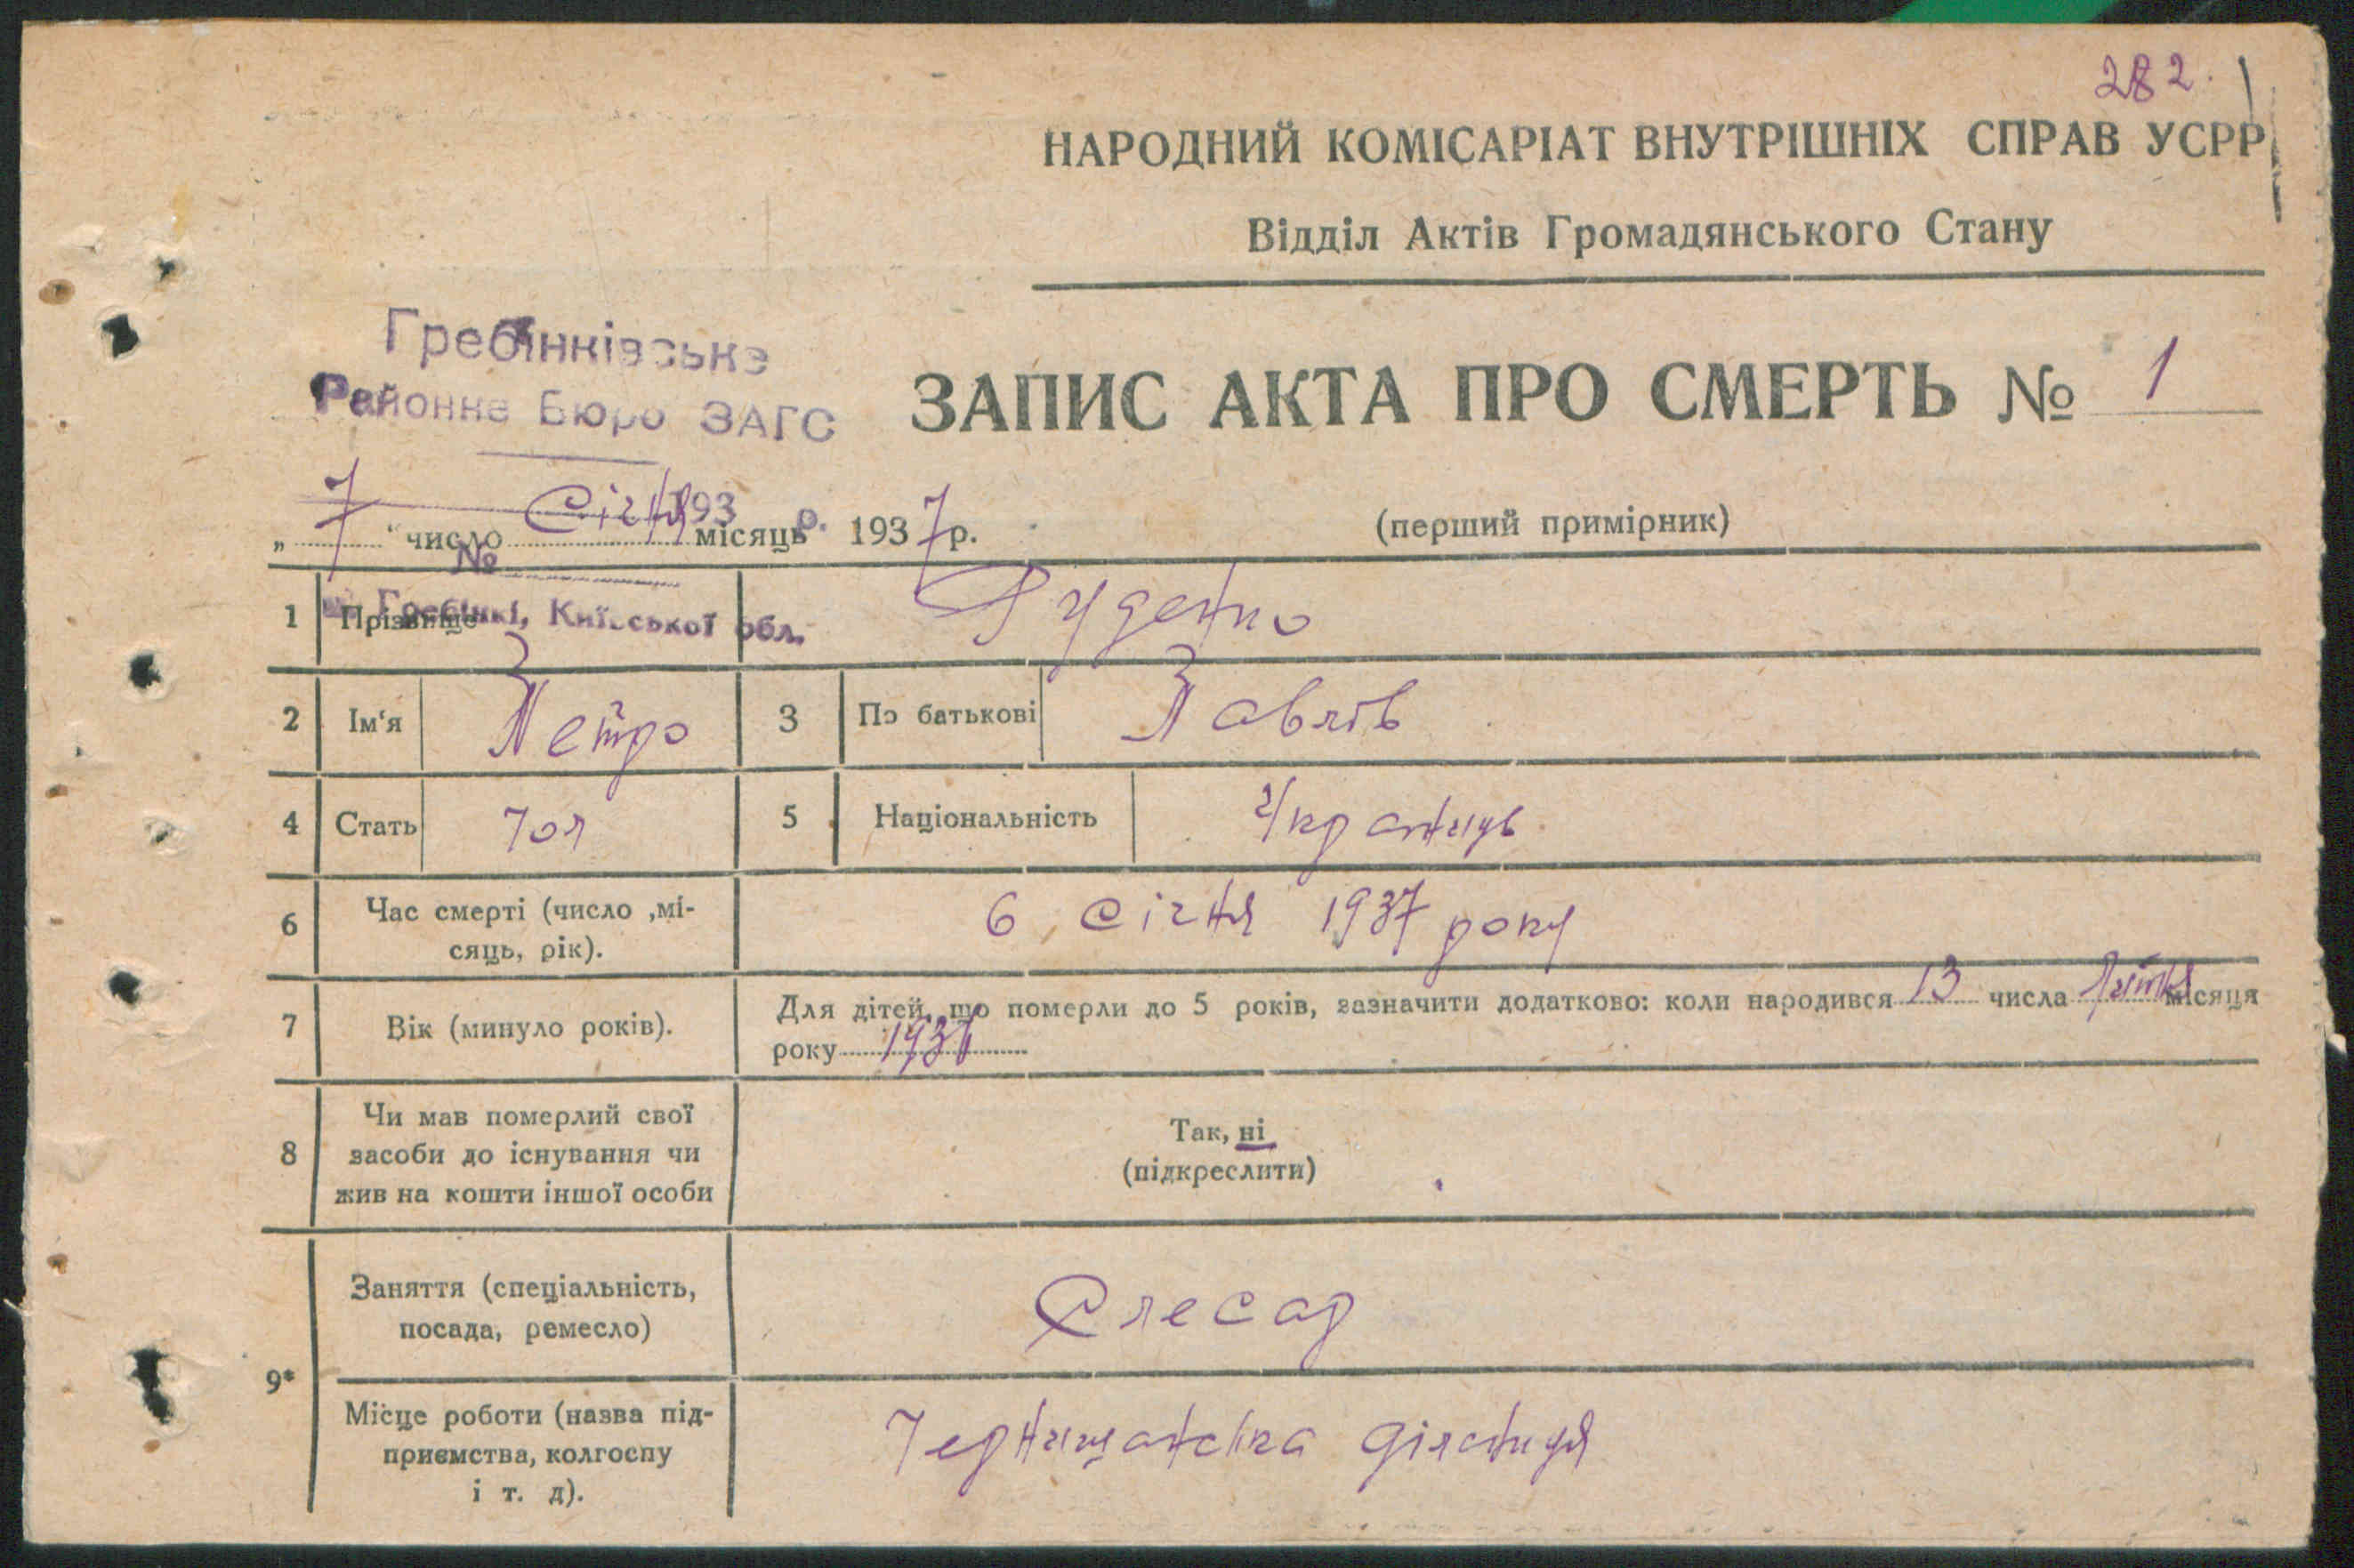 282.
НАРОДНИЙ КОМІСАРІАТ ВНУТРІШНІХ СПРАВ УСРР
Відділ Актів Громадянського Стану
Гребінківське
Районне Бюро ЗАГС
ЗАПИС АКТА ПРО СМЕРТЬ № 1
193 р.
„ 7 “ число Січня місяць 1937 р.
(перший примірник)
№
Гребінкі, Київської обл.
1 Прізвище Руденко
2 Ім'я Петро 3 По батькові Павлів
4 Стать Чол 5 Національність Українець
6 Час смерті (число ,мі-
сяць, рік). 6 січня 1937 року
7 Вік (минуло років). Для дітей, що померли до 5 років, зазначити додатково: коли народився 13 числа місяця
року
8 Чи мав померлий свої
засоби до існування чи
жив на кошти іншої особи
Так, ні
(підкреслити)
9*
Заняття (спеціальність,
посада, ремесло) Слесар
Місце роботи (назва під-
приємства, колгоспу
і т. д). дільниця